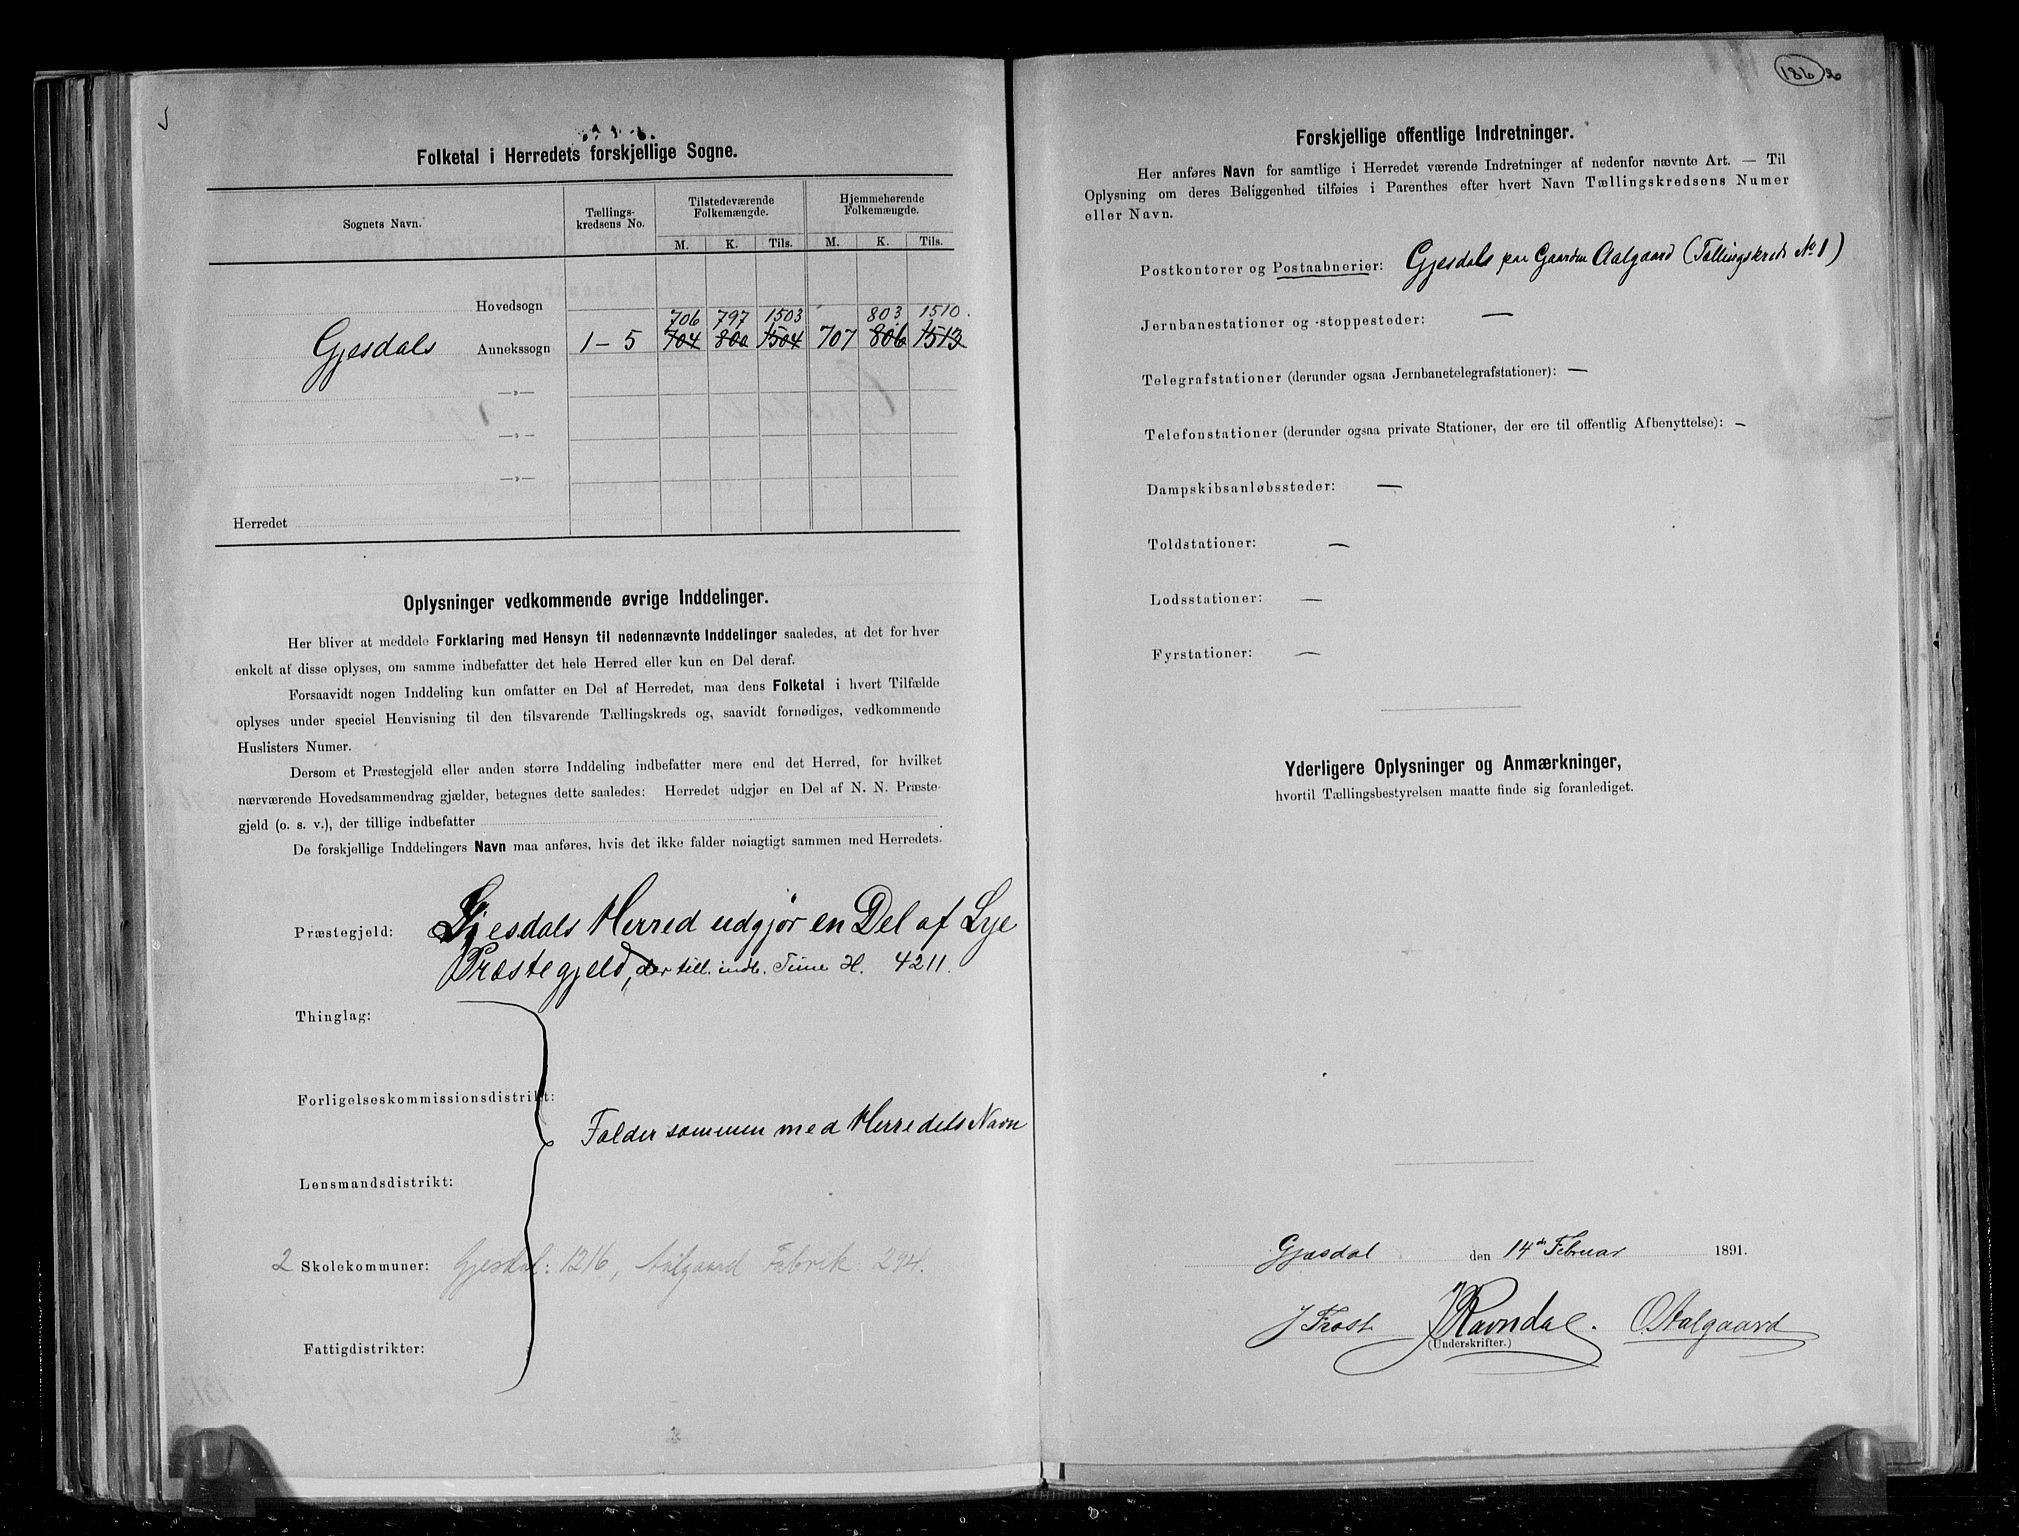 Folketal i Herredets forskjellige Sogne.
Sognets Navn. Tællings- kredsens No. Tilstedeværende Folkemængde. Hjemmehørende Folkemængde.
M. K. Tils. M. K. Tils.
Hovedsogn
706 797 1503 803 1510.
Gjesdals Annekssogn 1-5 704 800 1504 707 806 1513
— » —
— » —
— » —
Herredet
Oplysninger vedkommende øvrige Inddelinger.
Her bliver at meddele Forklaring med Hensyn til nedennævnte Inddelinger saaledes, at det for hver
enkelt af disse oplyses, om samme indbefatter det hele Herred eller kun en Del deraf.
Forsaavidt nogen Inddeling kun omfatter en Del af Herredet, maa dens Folketal i hvert Tilfælde
oplyses under speciel Henvisning til den tilsvarende Tællingskreds og, saavidt fornødiges, vedkommende
Huslisters Numer.
Dersom et Præstegjeld eller anden større Inddeling indbefatter mere end det Herred, for hvilket
nærværende Hovedsammendrag gjælder, betegnes dette saaledes: Herredet udgjør en Del af N. N. Præste-
gjeld (o. s. v.), der tillige indbefatter
De forskjellige Inddelingers Navn maa anføres, hvis det ikke falder nøiagtigt sammen med Herredets.
Præstegjeld: Gjesdals Herred udgjør en Del af Lye
Præstegjeld, der till. indb. Time H. 4211.
Thinglag:
Forligelseskommissionsdistrikt:
Falder sammen med Herredets Navn
Lensmandsdistrikt:
2 Skolekommuner: Gjesdal: 1216, Aalgaard Fabrik 294.
Fattigdistrikter:
186 2
Forskjellige offentlige Indretninger.
Her anføres Navn for samtlige i Herredet værende Indretninger af nedenfor nævnte Art. — Til
Oplysning om deres Beliggenhed tilføies i Parenthes efter hvert Navn Tællingskredsens Numer
eller Navn.
Postkontorer og Postaabnerier: Gjesdals paa Gaarden Aalgaard (Tællingskreds No 1)
Jernbanestationer og -stoppesteder: —
Telegrafstationer (derunder ogsaa Jernbanetelegrafstationer): —
Telefonstationer (derunder ogsaa private Stationer, der ere til offentlig Afbenyttelse): —
Dampskibsanløbssteder: —
Toldstationer: —
Lodsstationer: —
Fyrstationer: —
Yderligere Oplysninger og Anmærkninger,
hvortil Tællingsbestyrelsen maatte finde sig foranlediget.
Gjesdal den 14de Februar 1891.
J Frost J Ravndal. O Aalgaard
(Underskrifter.)